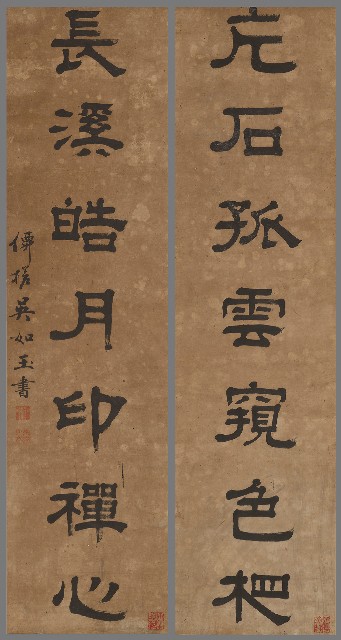 片石孤雲窺色相
長溪皓月印禪心
僊槎吳如玉書